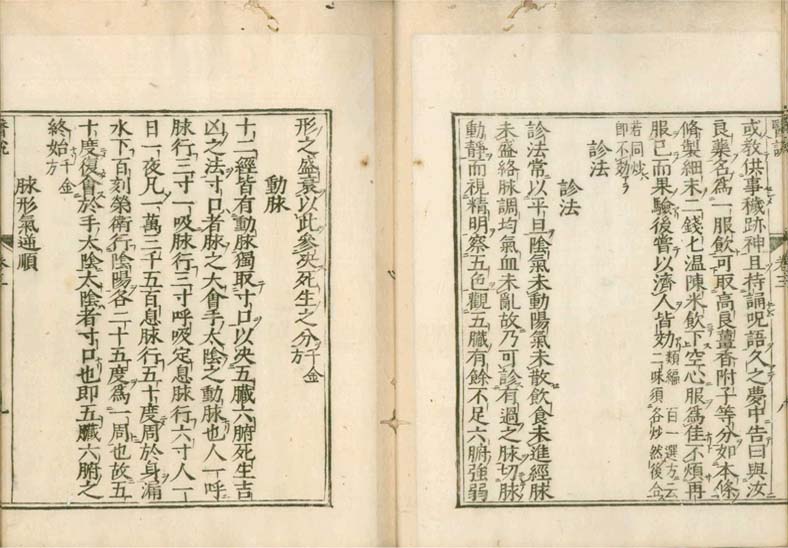 醫説
卷三
或敎供事穢跡神且持誦呪語久之夢中告曰與汝
良藥名爲一服飲可取高良薑香附子等分如本條
脩製細末二錢匕温陳米飲下空心服爲佳不煩再
服已而果驗後嘗以濟人皆効類編百一選方云二味須各炒然後合
若同炒即不効
診法
診法
診法常以平旦陰氣未動陽氣未散飲食未進經脉
未盛絡脉調均氣血未亂故乃可診有過之脉切脉
動靜而視精明察五色觀五臟有餘不足六腑強弱
形之盛衰以此參决死生之分千金方
動脉
十二經皆有動脉獨取寸口以决五臟六腑死生吉
凶之法寸口者脉之大會手太陰之動脉也人一呼
脉行三寸一吸脉行三寸呼吸定息脉行六寸人一
日一夜凡一萬三千五百息脉行五十度周於身漏
水下百刻榮衛行陰陽各二十五度爲一周也故五
十度復會於手太陰太陰者寸口也即五臟六腑之
終始千金方
脉形氣逆順